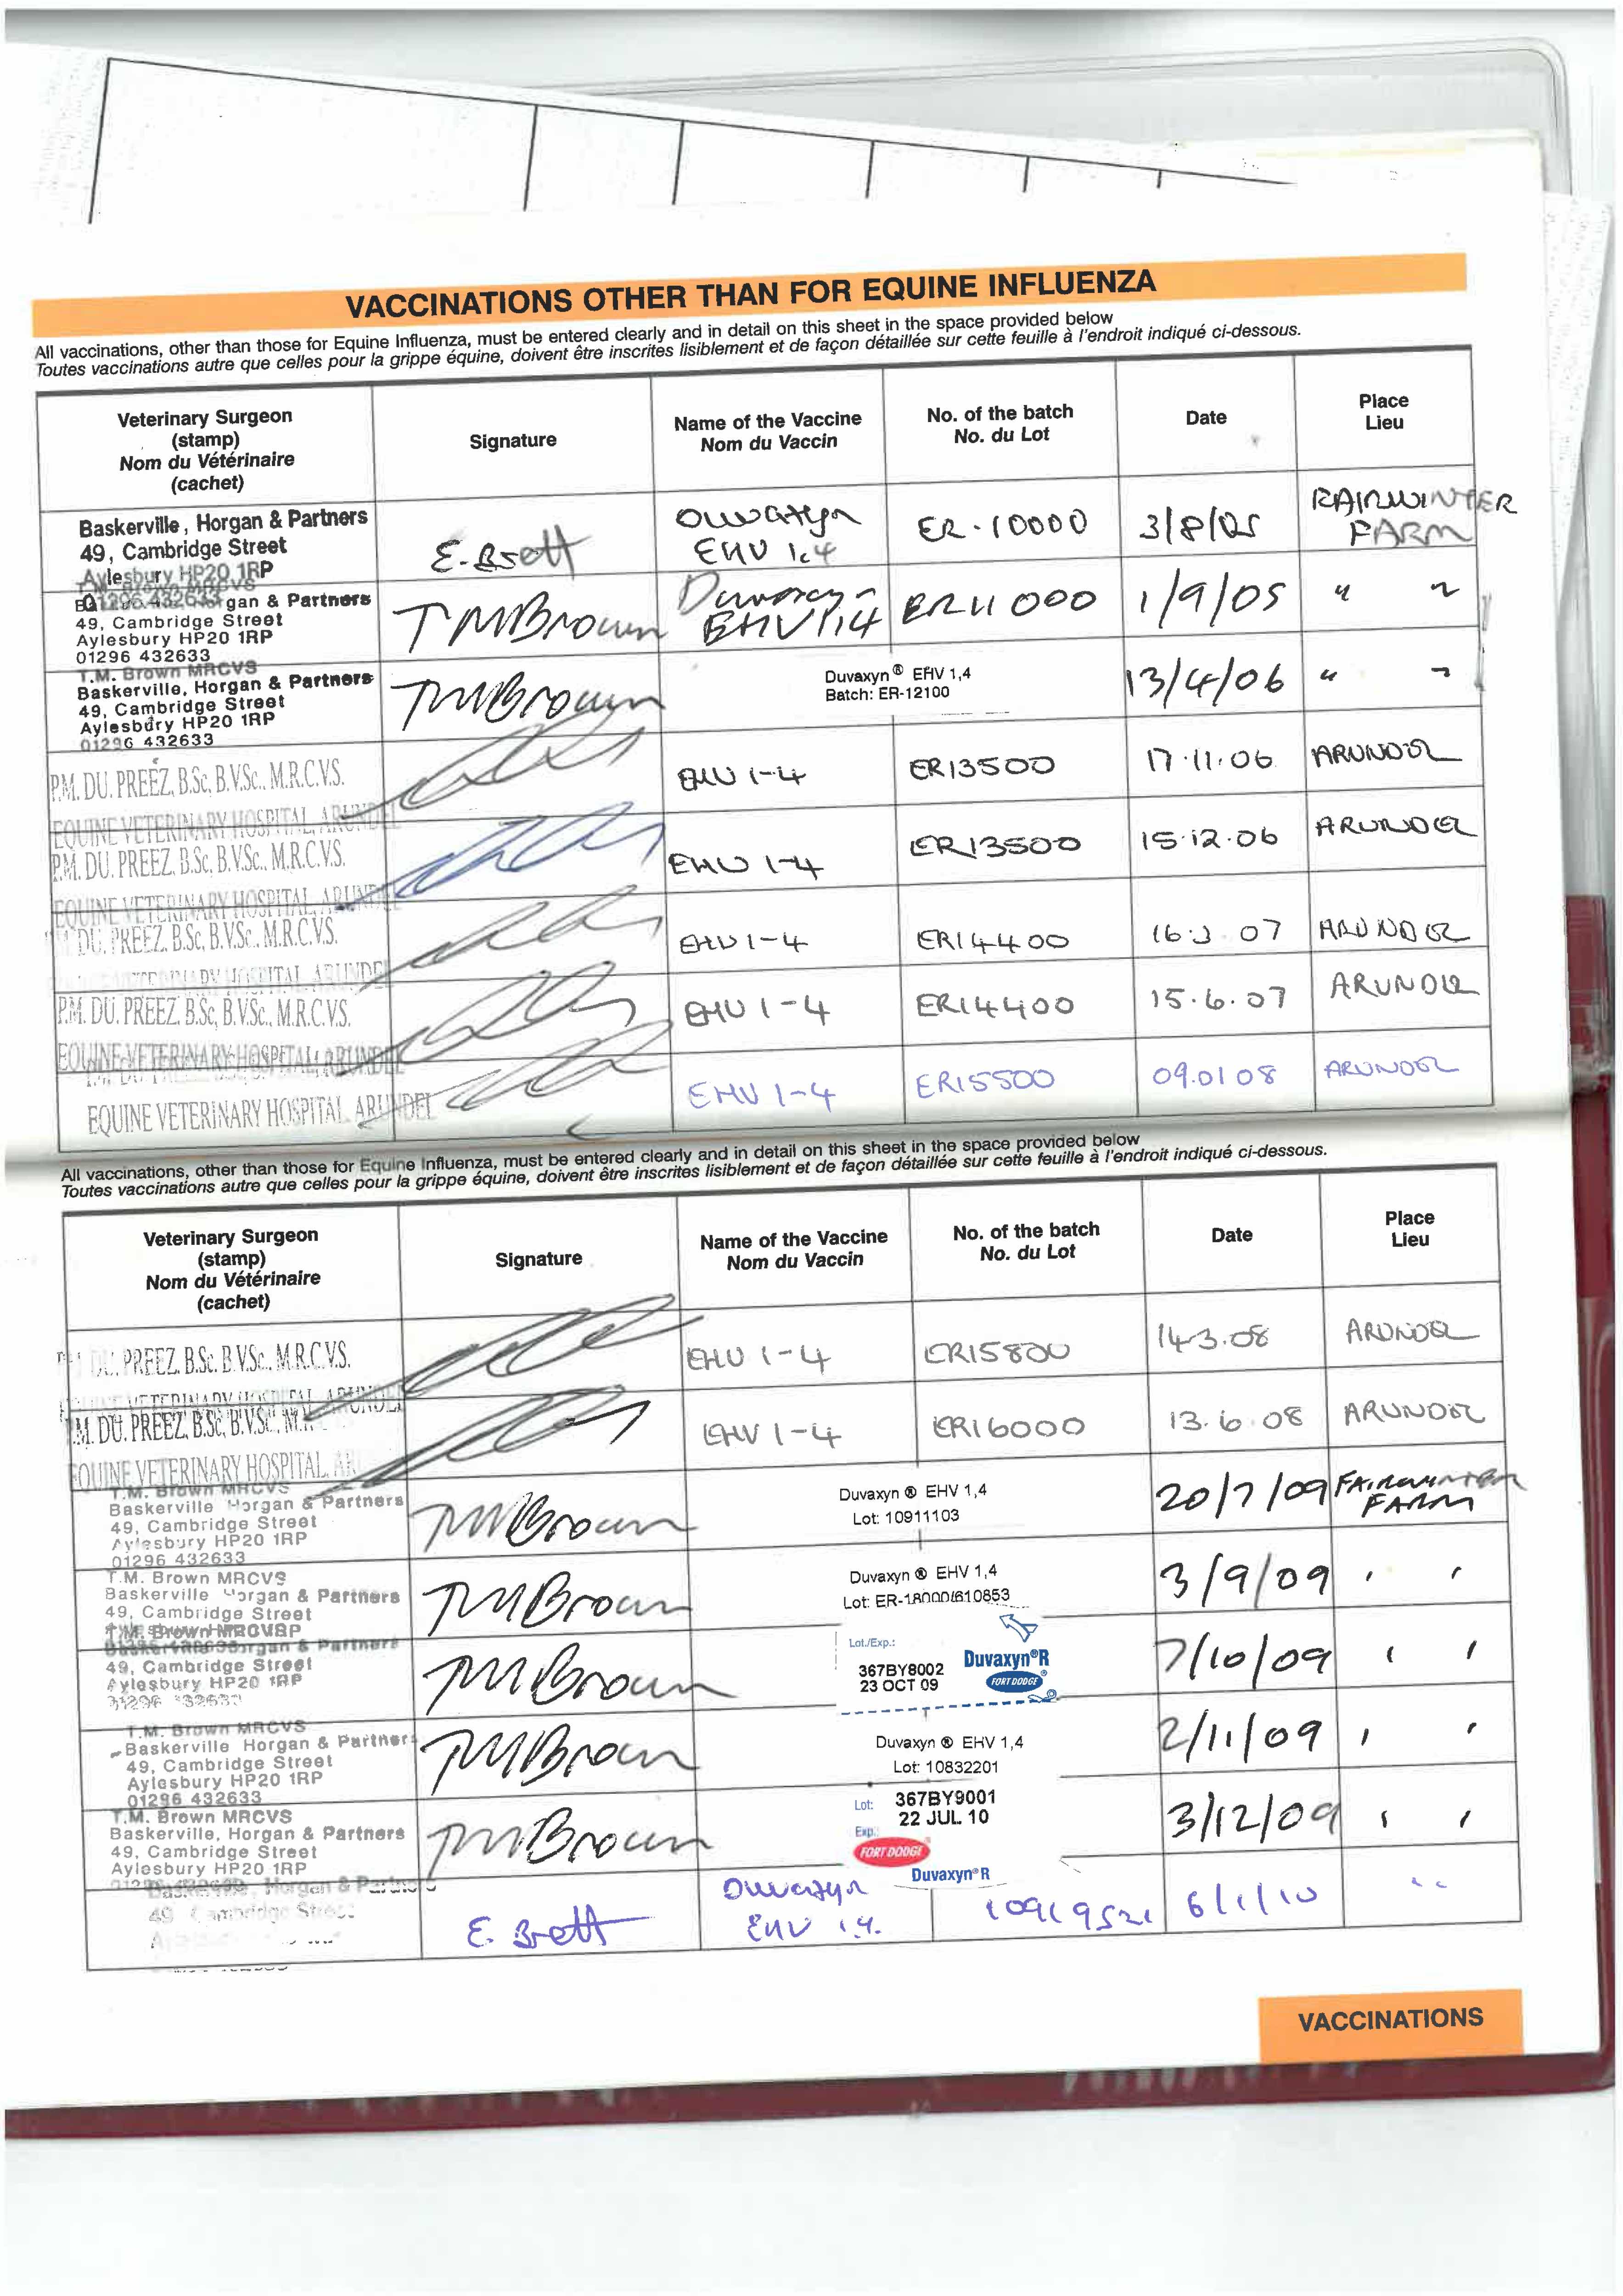 VACCINATIONS OTHER THAN FOR EQUINE INFLUENZA
All vaccinations, other than those for Equine Influenza, must be entered clearly and in detail on this sheet in the space provided below
Toutes vaccinations autre que celles pour la grippe équine, doivent être inscrites lisiblement et de façon détaillée sur cette feuille à l'endroit indiqué ci-dessous.
Veterinary Surgeon
(stamp)
Nom du Vétérinaire
(cachet)
Signature
Name of the Vaccine
Nom du Vaccin
No. of the batch
No. du Lot
Date
Place
Lieu
Baskerville, Horgan & Partners
49, Cambridge Street
Aylesbury HP20 1RP
01296 432633
E. Brett
EHV 1.4
ER-10000
3/8/05
FARM
T.M. Brown MRCVS
gan & Partners
49, Cambridge Street
Aylesbury HP20 1RP
01296 432633
TMBrown
Duvaxyn
EHV 1,4
ER11000
1/9/05
" "
T.M. Brown MRCVS
Baskerville, Horgan & Partners
49, Cambridge Street
Aylesbury HP20 1RP
01296 432633
TMBrown
Duvaxyn® EHV 1,4
Batch: ER-12100
13/4/06
" "
P.M. DU. PREEZ, B.Sc, B.V.Sc., M.R.C.V.S.
EQUINE VETERINARY HOSPITAL, ARUNDEL
EHV 1-4
ER13500
17.11.06
ARUNDEL
P.M. DU. PREEZ, B.Sc, B.V.Sc., M.R.C.V.S.
EQUINE VETERINARY HOSPITAL, ARUNDEL
EHV 1-4
ER13500
15.12.06
ARUNDEL
DU. PREEZ, B.Sc, B.V.Sc., M.R.C.V.S.
VETERINARY HOSPITAL, ARUNDEL
EHV 1-4
ER14400
16.3.07
ARUNDEL
P.M. DU. PREEZ, B.Sc, B.V.Sc., M.R.C.V.S.
EQUINE VETERINARY HOSPITAL, ARUNDEL
EHV 1-4
ER14400
15.6.07
ARUNDEL
EQUINE VETERINARY HOSPITAL, ARUNDEL
EHV 1-4
ER15500
09.01 08
ARUNDEL
All vaccinations, other than those for Equine Influenza, must be entered clearly and in detail on this sheet in the space provided below
Toutes vaccinations autre que celles pour la grippe équine, doivent être inscrites lisiblement et de façon détaillée sur cette feuille à l'endroit indiqué ci-dessous.
Veterinary Surgeon
(stamp)
Nom du Vétérinaire
(cachet)
Signature
Name of the Vaccine
Nom du Vaccin
No. of the batch
No. du Lot
Date
Place
Lieu
DU. PREEZ, B.Sc, B.V.Sc., M.R.C.V.S.
VETERINARY HOSPITAL, ARUNDEL
EHV 1-4
ER15800
14.3.08
ARUNDEL
DU. PREEZ, B.Sc, B.V.Sc.,
EQUINE VETERINARY HOSPITAL,
EHV 1-4
ER16000
13.6.08
ARUNDEL
T.M. Brown MRCVS
Baskerville Horgan & Partners
49, Cambridge Street
Aylesbury HP20 1RP
01296 432633
TMBrown
Duvaxyn ® EHV 1,4
Lot: 10911103
20/7/09
FARM
T.M. Brown MRCVS
Baskerville Horgan & Partners
49, Cambridge Street
TMBrown
Duvaxyn ® EHV 1,4
Lot: ER-18000/610853
3/9/09
T.M. Brown MRCVS
49, Cambridge Street
Aylesbury HP20 1RP
TMBrown
Lot./Exp.:
367BY8002
23 OCT 09
Duvaxyn®R
FORT DODGE
7/10/09
T.M. Brown MRCVS
Baskerville Horgan & Partners
49, Cambridge Street
Aylesbury HP20 1RP
01296 432633
TMBrown
Duvaxyn ® EHV 1,4
Lot: 10832201
2/11/09
T.M. Brown MRCVS
Baskerville, Horgan & Partners
49, Cambridge Street
Aylesbury HP20 1RP
TMBrown
Lot: 367BY9001
22 JUL 10
Exp.:
FORT DODGE
Duvaxyn®R
3/12/09
Horgan & Partners
49 Cambridge Street
E. Brett
EHV 1.4.
6/1/10
VACCINATIONS